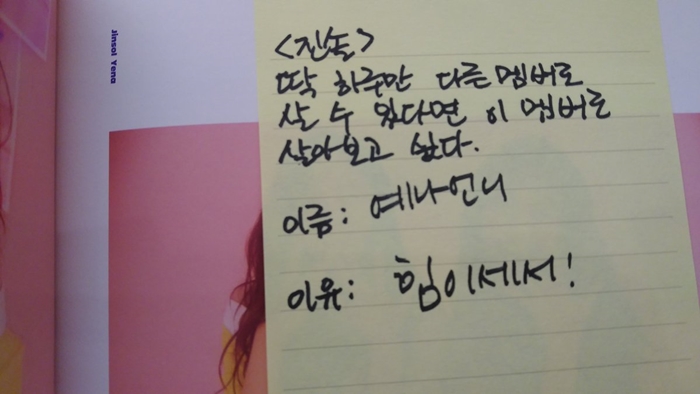 Jinsol Yena
<진솔>
딱 하루만 다른 멤버로
살 수 있다면 이 멤버로
살아보고 싶다.
이름: 예나언니
이유: 힘이세서!